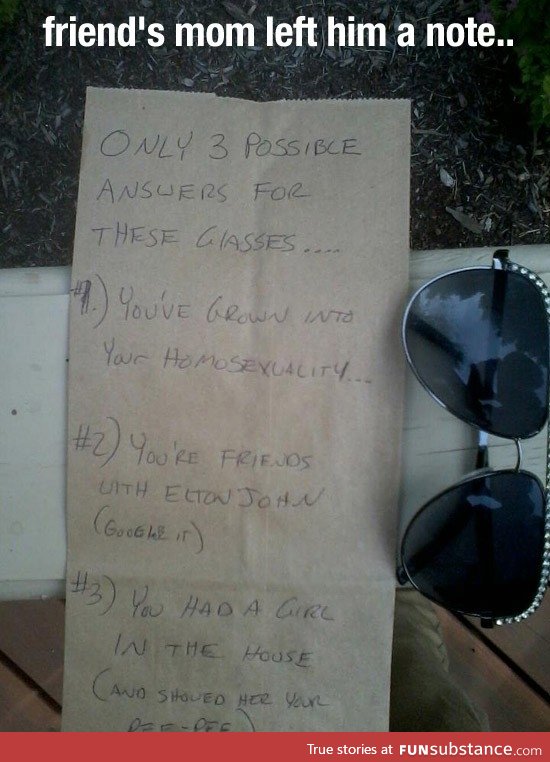 friend's mom left him a note..
ONLY 3 POSSIBLE
ANSWERS FOR
THESE GLASSES....
#1.) YOU'VE GROWN INTO
YOUR HOMOSEXUALITY...
#2) YOU'RE FRIENDS
WITH ELTON JOHN
(GOOGLE IT)
#3) YOU HAD A GIRL
IN THE HOUSE
(AND SHOWED HER YOUR
PEE-PEE)
True stories at FUNsubstance.com